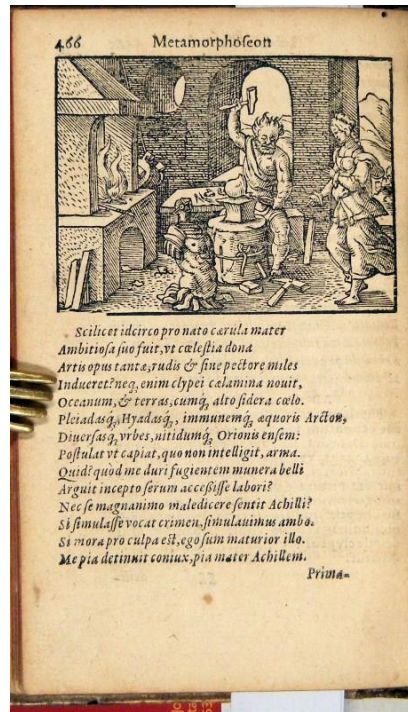 466 Metamorphoseon
Scilicet idcirco pro nato cærula mater
Ambitiosa suo fuit, vt cœlestia dona
Artis opus tantæ, rudis & sine pectore miles
Indueret? neq; enim clypei cælamina nouit,
Oceanum, & terras, cumq́; alto sidera cœlo.
Pleiadasq́;, Hyadasq́;, immunemq́; æquoris Arcton,
Diuersasq́; vrbes, nitidumq́; Orionis ensem:
Postulat vt capiat, quo non intelligit, arma.
Quid? quòd me duri fugientem munera belli
Arguit incepto serum accessisse labori?
Nec se magnanimo maledicere sentit Achilli?
Si simulasse vocat crimen, simulauimus ambo.
Si mora pro culpa est, ego sum maturior illo.
Me pia detinuit coniux, pia mater Achillem.
Prima-